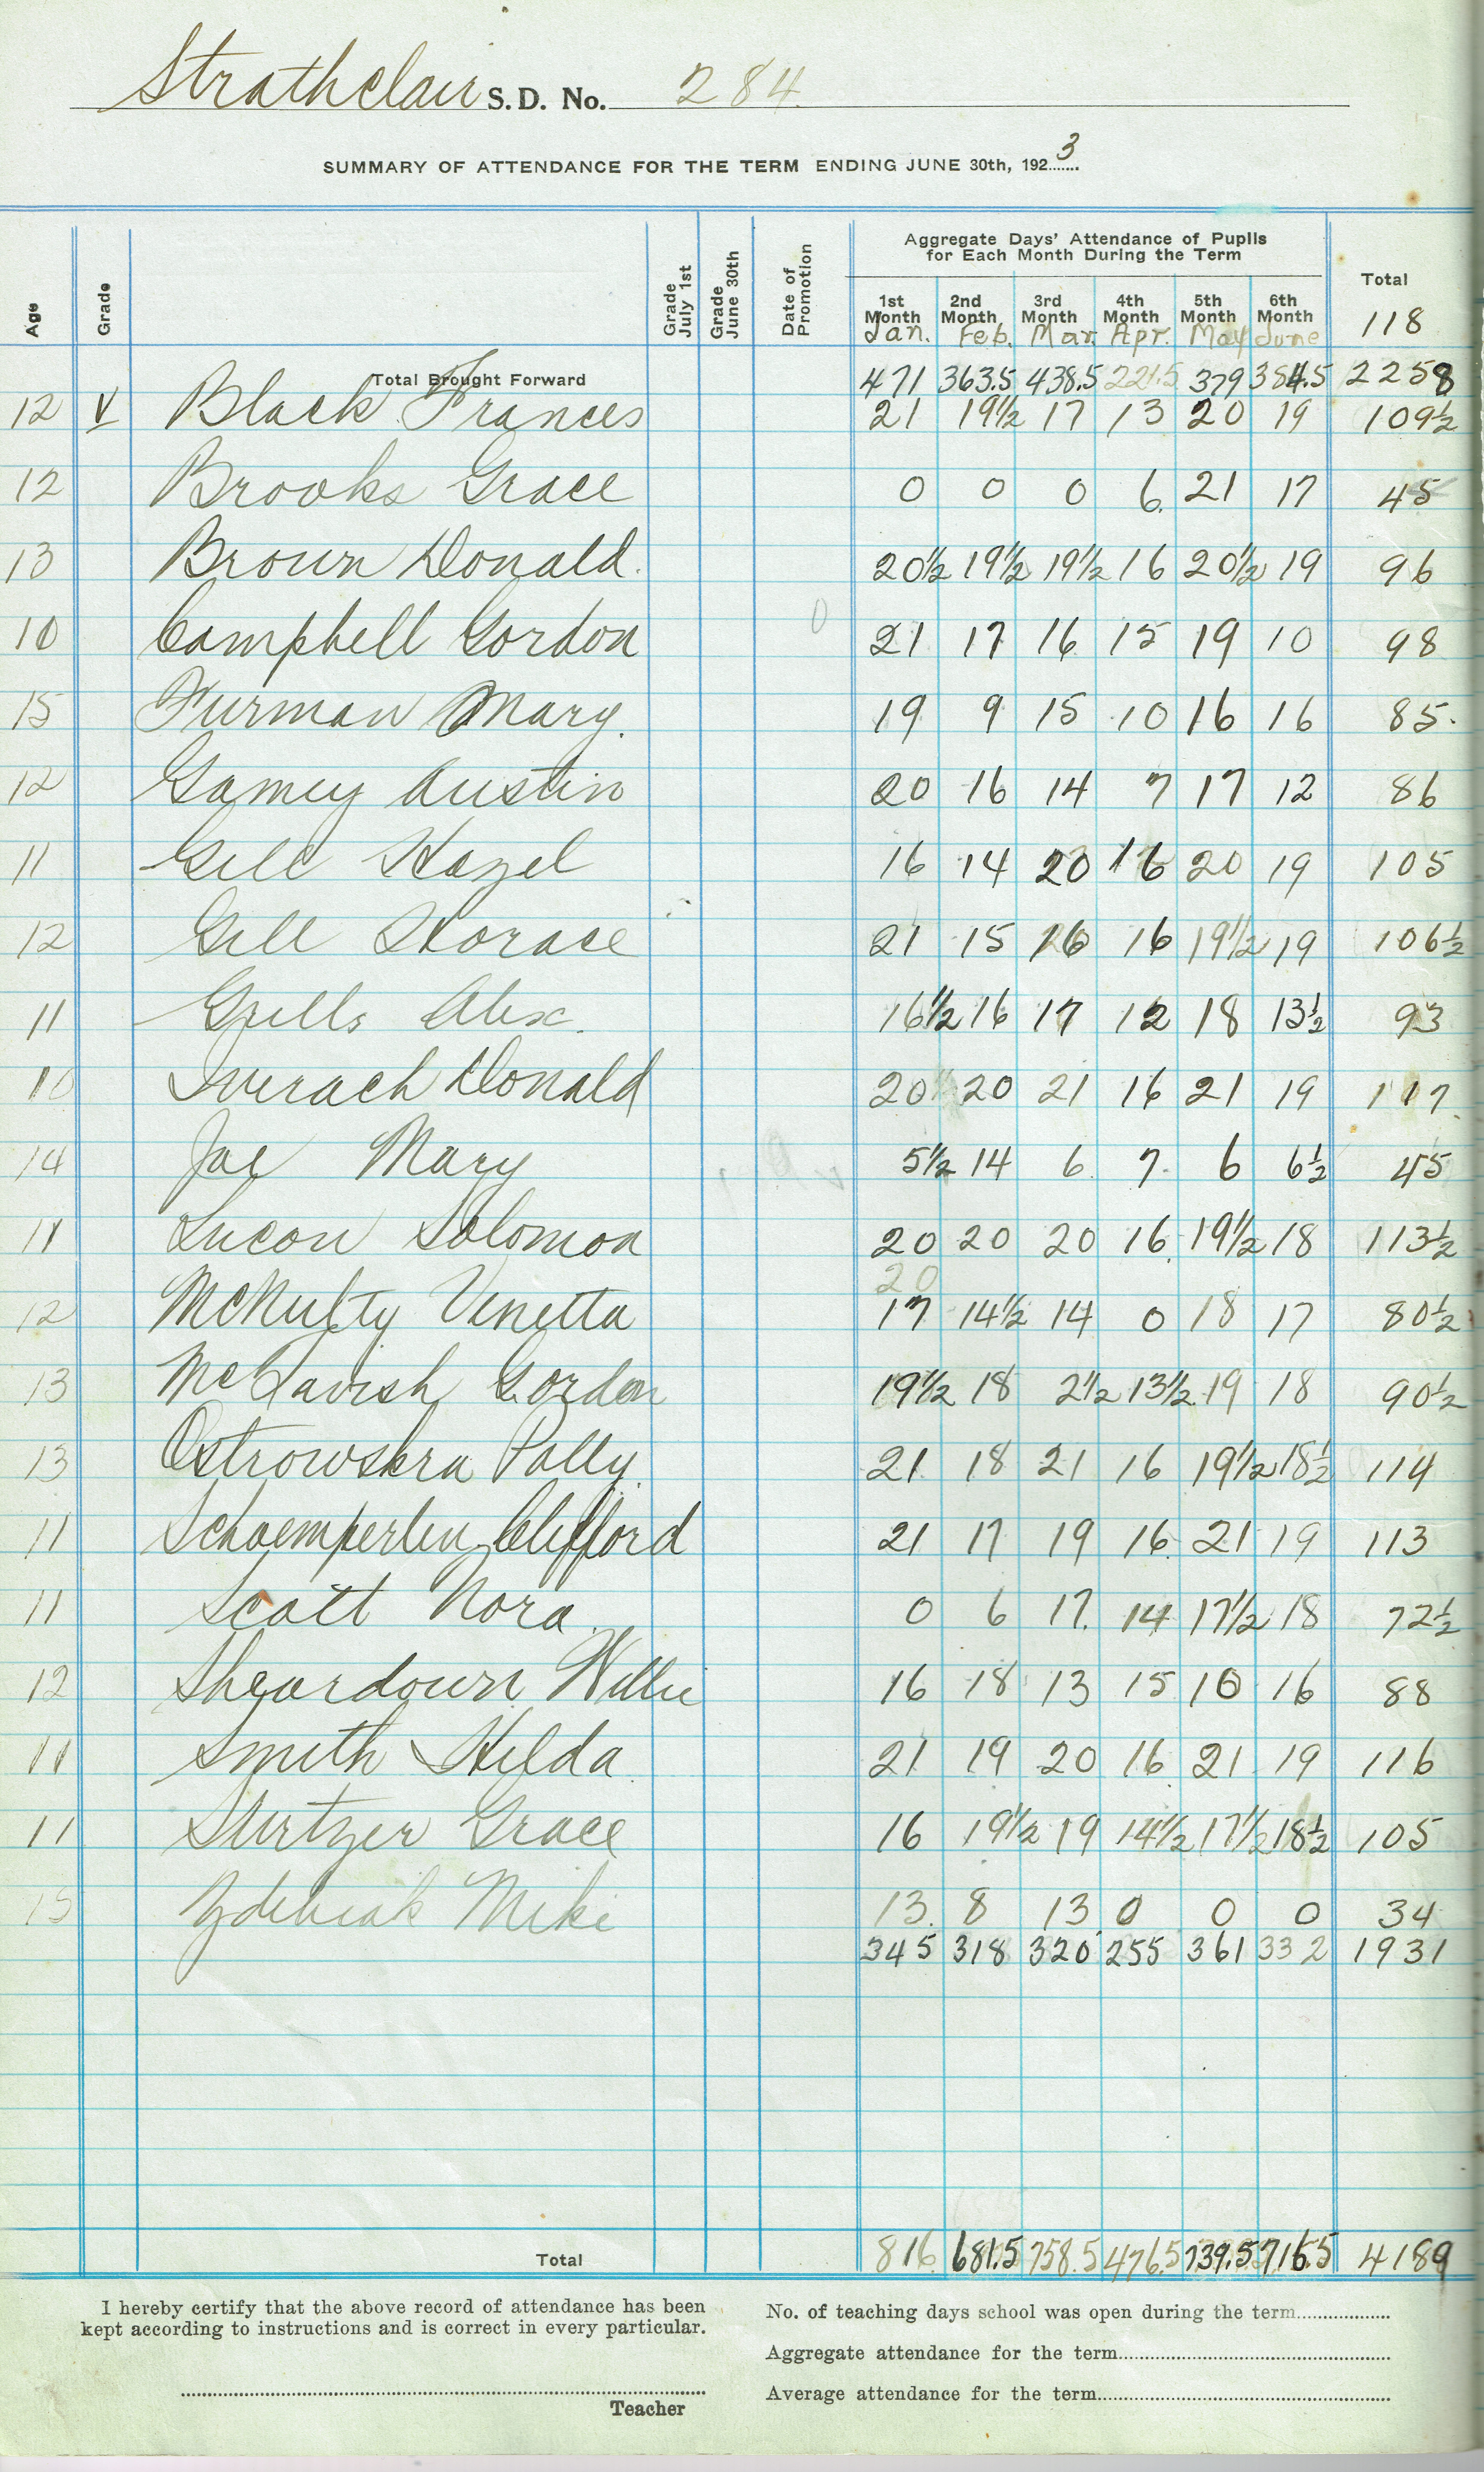 Strathclair S.D. No. 284
SUMMARY OF ATTENDANCE FOR THE TERM ENDING JUNE 30th, 1923
Aggregate Days' Attendance of Pupils
for Each Month During the Term
Age Grade Grade July 1st Grade June 30th Date of Promotion 1st Month 2nd Month 3rd Month 4th Month 5th Month 6th Month Total
Jan. Feb. Mar. Apr. May June 118
Total Brought Forward 471 363.5 438.5 221.5 379 384.5 2258
12 V Black Frances 21 19½ 17 13 20 19 109½
12 Brooks Grace 0 0 0 6 21 17 45
13 Brown Donald 20½ 19½ 19½ 16 20½ 19 96
10 Campbell Gordon 21 17 16 15 19 10 98
15 Furman Mary 19 9 15 10 16 16 85
12 Gamey Austin 20 16 14 7 17 12 86
11 Gill Hazel 16 14 20 16 20 19 105
12 Gill Horace 21 15 16 16 19½ 19 106½
11 Grills Alex. 16½ 16 17 12 18 13½ 93
10 Inverach Donald 20 20 21 16 21 19 117
14 Joe Mary 5½ 14 6 7 6 6½ 45
11 Lucow Solomon 20 20 20 16 19½ 18 113½
20
12 McNulty Venetta 17 14½ 14 0 18 17 80½
13 McTavish Gordon 19½ 18 2½ 13½ 19 18 90½
13 Ostrowskra Polly 21 18 21 16 19½ 18½ 114
11 Schoemperlen Clifford 21 17 19 16 21 19 113
11 Scott Nora 0 6 17 14 17½ 18 72½
12 Sheardown Willie 16 18 13 15 10 16 88
11 Smith Hilda 21 19 20 16 21 19 116
11 Sturtzer Grace 16 19½ 19 14½ 17½ 18½ 105
15 Zdebiak Mike 13 8 13 0 0 0 34
345 318 320 255 361 332 1931
Total 816 681.5 758.5 476.5 739.5 716.5 4189
I hereby certify that the above record of attendance has been
kept according to instructions and is correct in every particular.
Teacher
No. of teaching days school was open during the term
Aggregate attendance for the term
Average attendance for the term